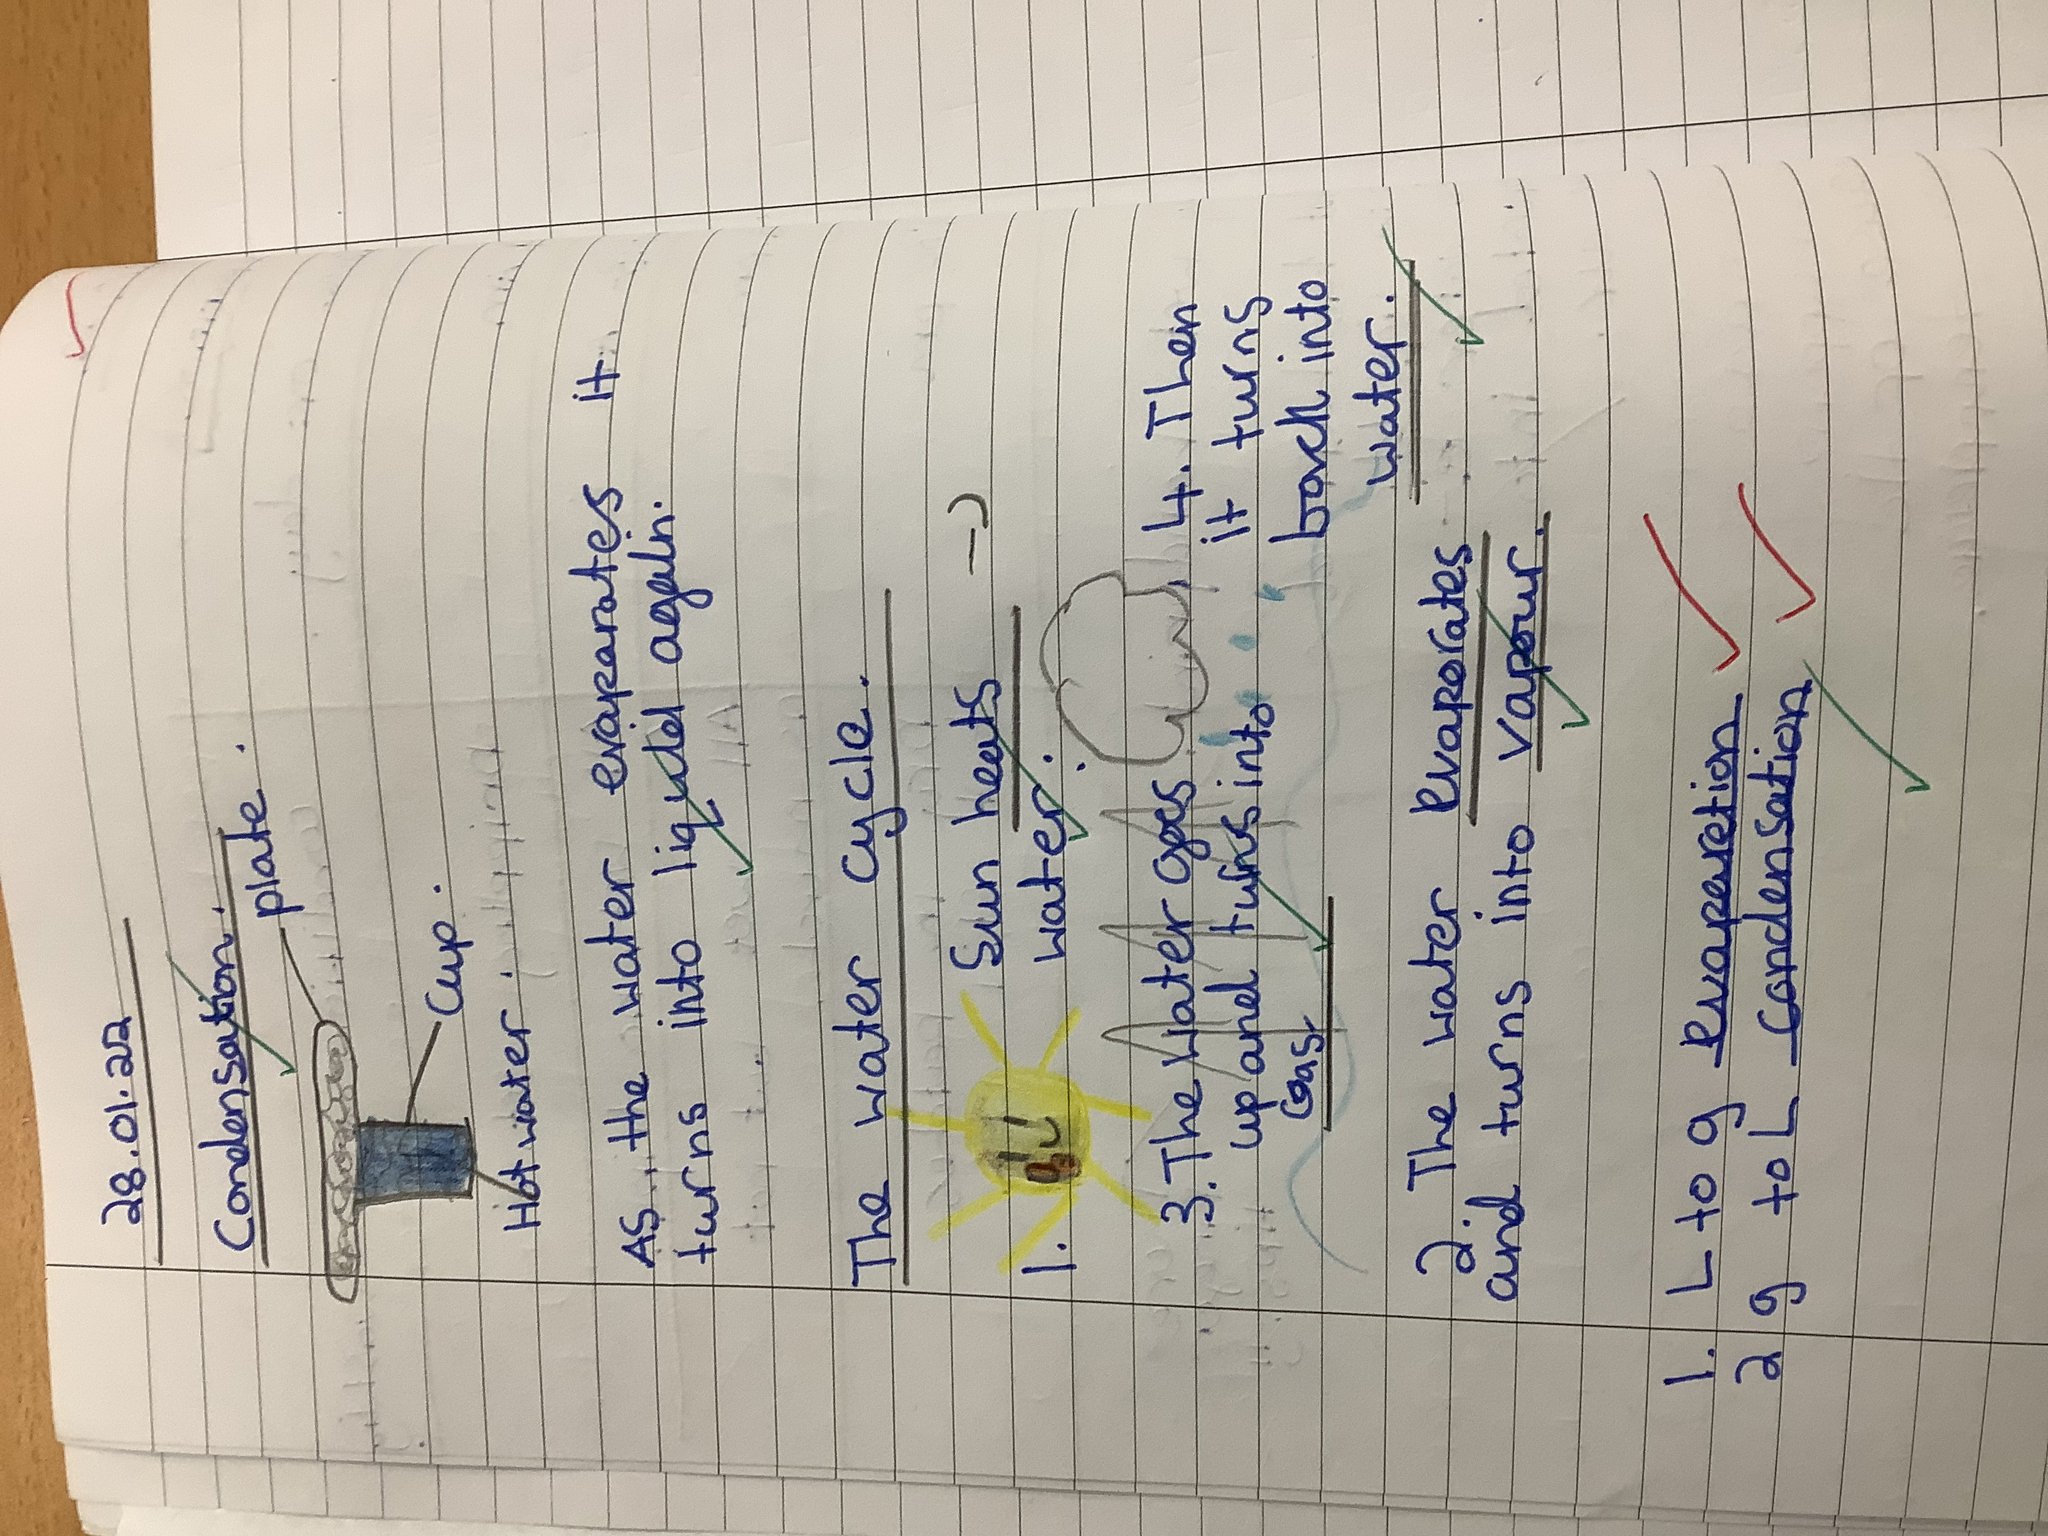 28.01.22
Condensation.
plate.
Cup.
Hot water.
As the water evaparates it
turns into liquid again.
The water cycle.
Sun heats
1. water.
3. The water goes
up and turns into
Gas
4. Then
it turns
back into
water.
2. The water evaporates
and turns into vapour.
1. L to g evaparetion
2 g to L condensation